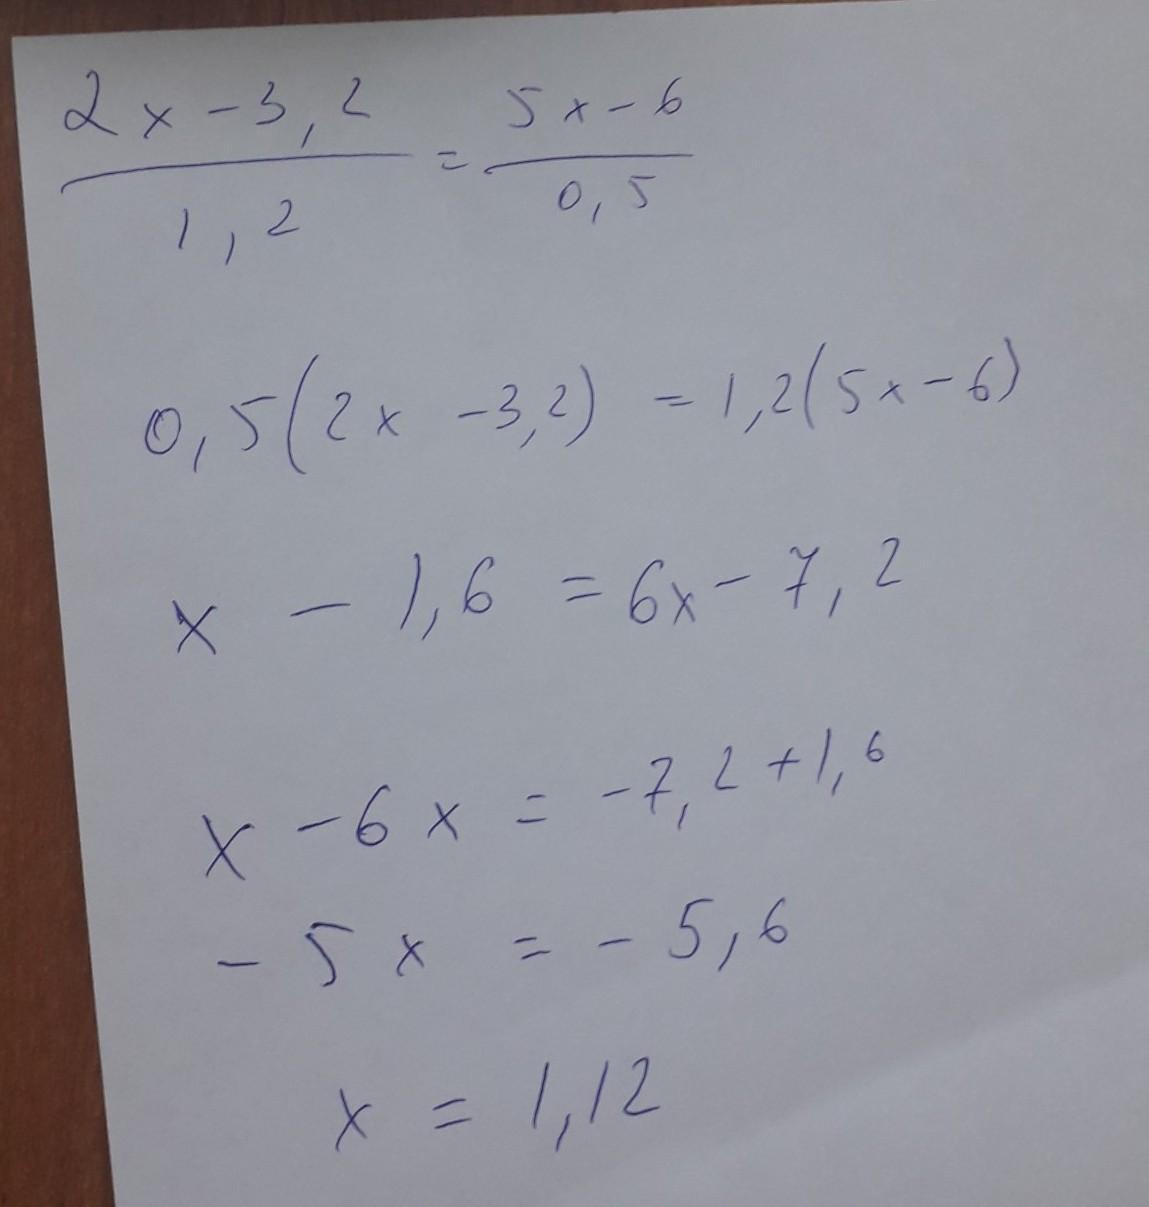 2x-3,2 / 1,2 = 5x-6 / 0,5
0,5(2x -3,2) = 1,2(5x-6)
x - 1,6 = 6x - 7,2
x - 6x = -7,2+1,6
-5x = -5,6
x = 1,12